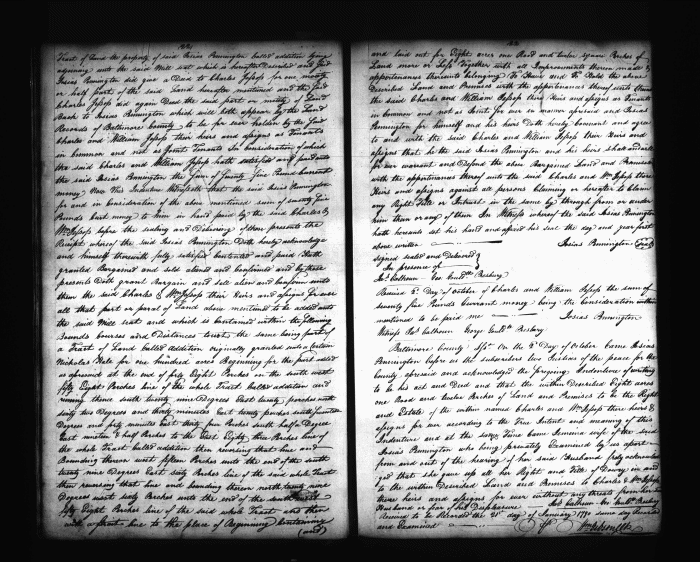 Tract of Land the property of said Josias Pennington called addition lying
adjoining unto the said Mill seat which is hereafter described and said
Josias Pennington did give a Deed to Charles Jessop for one moiety
or half part of the said Land hereafter mentioned and the said
Charles Jessop did again Deed the said part or moiety of Land
Back to Josias Pennington which will both appear by the Land
Records of Baltimore County to be for to be holden by the said
Charles and William Jessop their heirs and assigns as Tenants
in common and not as Joint Tenants In Consideration of which
the said Charles and William Jessop hath satisfied and paid unto
the said Josias Pennington the sum of seventy five Pounds Currant
money Now this Indenture Witnesseth that the said Josias Pennington
for and in Consideration of the above mentioned sum of seventy five
Pounds Curt money to him in hand paid by the said Charles &
Wm Jessop before the sealing and Delivering of these presents the
Receipt whereof the said Josias Pennington Doth hereby acknowledge
and himself therewith fully satisfied contented and paid Hath
granted Bargained and sold aliened and confirmed and by these
presents Doth grant Bargain and sell alien and confirm unto
them the said Charles & Wm Jessop their Heirs and assigns for ever
all that part or parcel of Land above mentioned to be added unto
the said Mill seat and which is contained within the following
bounds courses and Distances to wit the same being part of
a Tract of Land called addition originally granted unto a certain
Nicholas Hale for one hundred acres Beginning for the part added
as aforesaid at the end of forty Eight Perches in the south west
fifty Eight Perches line of the whole Tract called addition and
running thence south seventy nine Degrees East twenty perches south
sixty two Degrees and thirty minutes East twenty perches south fourteen
Degrees and forty minutes East thirty four Perches south half Degree
East nineteen & half Perches to the East Eighty three Perches line of
the whole Tract called addition then reversing that line and
Bounding thereon west fifteen Perches unto the end of the south
seventy nine Degrees East sixty Perches line of the said whole Tract
then reversing that line and bounding thereon north seventy nine
Degrees west sixty Perches unto the end of the south west
fifty Eight Perches line of the said whole Tract and then
with a strait line to the place of Beginning Containing
(and)
and laid out for Eight acres one Rood and twelve square Perches of
Land more or Less Together with all Improvements thereon made &
appertenances thereunto belonging To Have and To Hold the above
Described Land and Premises with the appertenances thereof unto them
the said Charles and William Jessop their Heirs and assigns as Tenants
in Common and not as Joint for ever in manner aforesaid and Josias
Pennington for himself and his heirs Doth hereby Covenant and agree
to and with the said Charles and William Jessop their Heirs and
assigns that he the said Josias Pennington and his heirs shall and will
for ever warrant and Defend the above Bargained Land and Premises
with the appertenances thereof unto the said Charles and Wm Jessop there
Heirs and assigns against all persons Claiming or hereafter to Claim
any Right Title or Intrust in the same by through from or under
him them or any of them In Witness whereof the said Josias Pennington
hath hereunto set his hand and affixed his seal the day and year first
above written Josias Pennington (seal)
signed sealed and Delivered
In presence of
Jas Calhoun Geo Goulds. Presbury
Received 6th Day of October of Charles and William Jessop the sum of
seventy five Pounds Currant money being the Consideration within
mentioned to be paid me Josias Pennington
Witness Jas Calhoun George Goulds. Presbury
Baltimore County Sst On the 6th Day of October Came Josias
Pennington before us the subscribers two Justices of the peace for the
County aforesaid and acknowledged the foregoing Indenture of writing
to be his act and Deed and that the within Described Eight acres
one Rood and twelve Perches of Land and Premises to be the Right
and Estate of the within named Charles and Wm Jessop there heirs &
assigns for ever according to the True Intent and meaning of this
Indenture and at the same Time Came Jemima wife of the said
Josias Pennington who being privately Examined by us apart
from and out of the hearing of her said Husband freely acknowled
ged that she gave up all her Right and Title of Dowry in and
to the within Described Land and Premises to Charles & Wm Jessop
there heirs and assigns for ever without any threats from her
Husband or fear of his Displeasure Jas Calhoun Geo Goulds. Presbury
Received to be Recorded the 21st day of January 1790 same day Recorded
and Examined